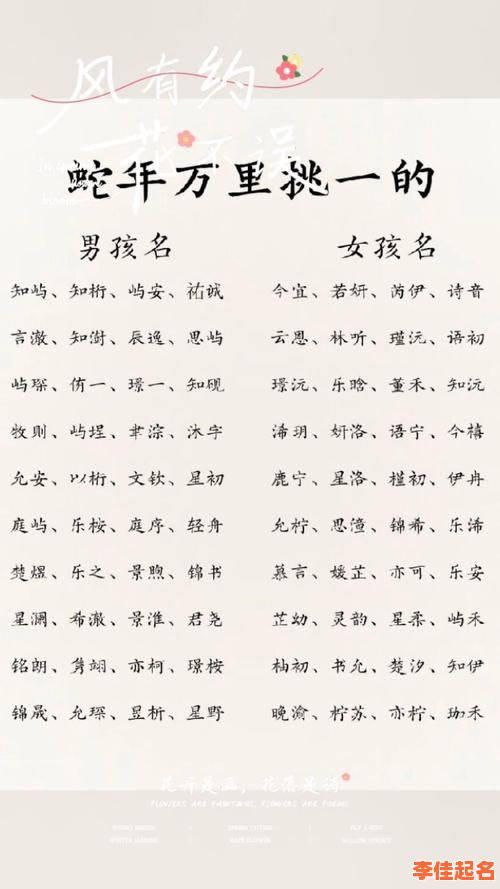 风有约
花不误
蛇年万里挑一的
男孩名
女孩名
知屿、知桁、屿安、祐诚
今宜、若妍、芮伊、诗音
言澈、知澍、辰逸、思屿
云思、林听、瑾沅、语初
屿琛、侑一、璟一、知砚
璟沅、乐晗、董禾、知沅
牧则、屿埕、聿淙、沐宇
浠玥、妍洛、语宁、今禧
允安、以桁、文钦、星初
鹿宁、星洛、槿初、伊冉
庭屿、乐桉、庭序、轻舟
允柠、思潼、锦希、乐浠
楚煜、乐之、景煦、锦书
慕言、媛芷、亦可、乐安
星澜、希澈、景淮、君尧
芷幼、灵韵、星柔、屿禾
铭朗、隽翊、亦柯、璟桉
柚初、书允、楚汐、知伊
锦晟、允琛、昱析、星野
晚渝、柠苏、亦柠、珈禾
花开是画，花落是诗
FLOWERS ARE PAINTINGS, FLOWERS ARE POEMS
李佳起名